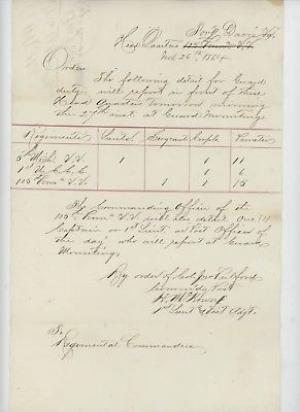 Fort Davis Va.
Head Quarters
Oct 26th 1864
Order
The following detail for Guard
duty will report in front of these
Head Quarters tomorrow morning
the 27th inst. at Guard Mounting
Regiments Lieuts Sergeant Corpls Privates
Mich. V.V. 1 1 11
1st U.S.C.C. 6
1 1 15
The Commanding Officer of the
Penna V.V. will also detail One (1)
Captain or 1st Lieut as Post Officer of
the day who will report at Guard
Mounting
By order of Col
Commdg Post
1st Lieut & Post Adjt.
To
Regimental Commanders